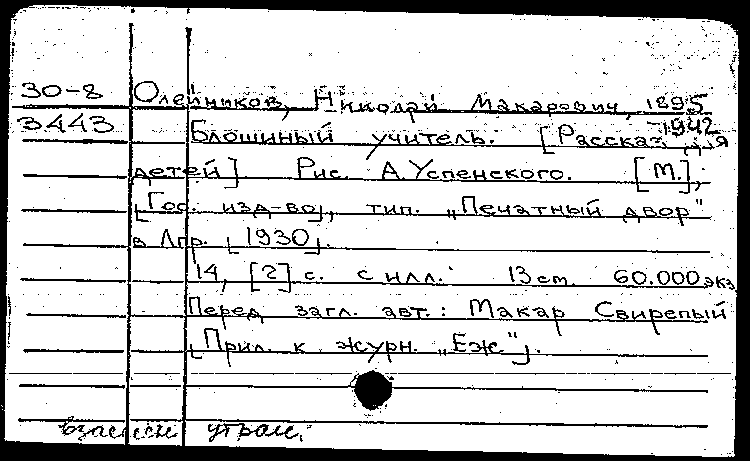 30-8 Олейников, Николай Макарович, 1895-1942
3443 Блошиный учитель. [Рассказ для
детей]. Рис. А. Успенского. [М.],
[Гос. изд-во], тип. „Печатный двор"
в Лгр. [1930].
14, [2] с. с илл. 13 см. 60.000 экз.
Перед загл. авт.: Макар Свирепый
[Прил. к журн. „Еж."].
взамен утрач.